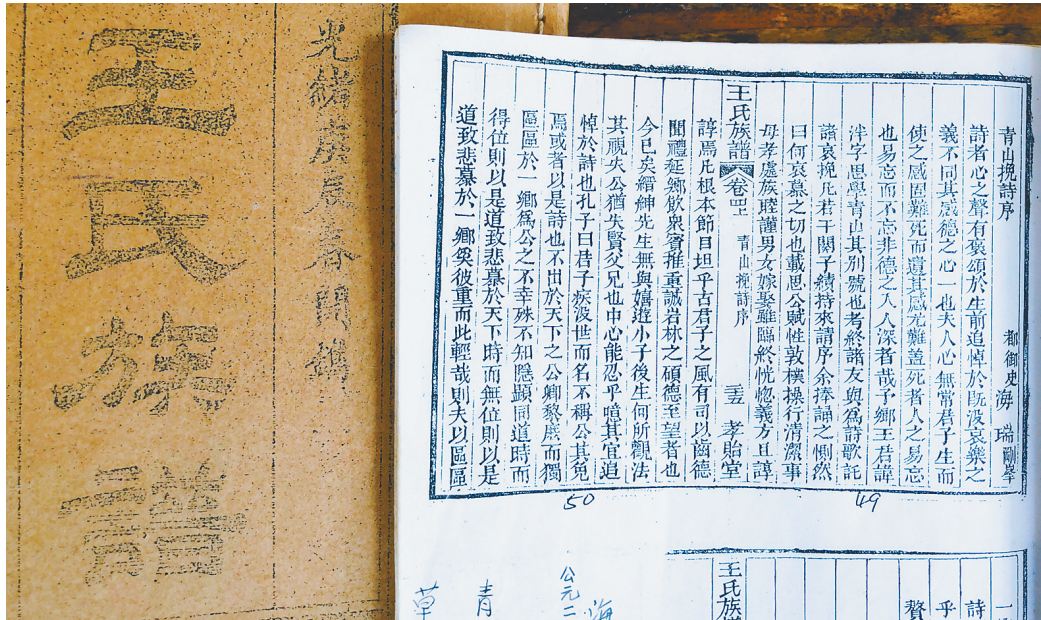 王氏族譜
光緒庚辰春開鐫
青山挽詩序 都御史 海瑞 剛峯
詩者心之聲有褒頌於生前追悼於既没哀樂之
義不同其感德之心一也夫人心無常君子生而
使之感固難死而遺其感尤難蓋死者人之易忘
也易忘而不忘非德之入人深者哉予鄉王君諱
泮字思學青山其別號也考終諸友與爲詩歌託
諸哀挽凡若干関子績持來請序余捧誦之惻然
曰何哀慕之切也載思公賦性敦樸操行清潔事
母孝處族睦謹男女嫁娶雖臨終恍惚義方且諄
王氏族譜 卷四上 青山挽詩序 孝貽堂
諄焉凡根本節目坦乎古君子之風有司以齒德
聞禮延鄉飲衆賓推重誠岩林之碩德至望者也
今已矣縉紳先生無與嬉遊小子後生何所觀法
其視失公猶失賢父兄也中心能忍乎噫其宜追
悼於詩也孔子曰君子疾没世而名不稱公其免
焉或者以是詩也不出於天下之公卿黎庶而獨
區區於一鄉爲公之不幸殊不知隱顯同道時而
得位則以是道致悲慕於天下時而無位則以是
道致悲慕於一鄉奚彼重而此輕哉則夫以區區
49
50
一
詩
乎
贅
王氏族
海
公元二
青
草